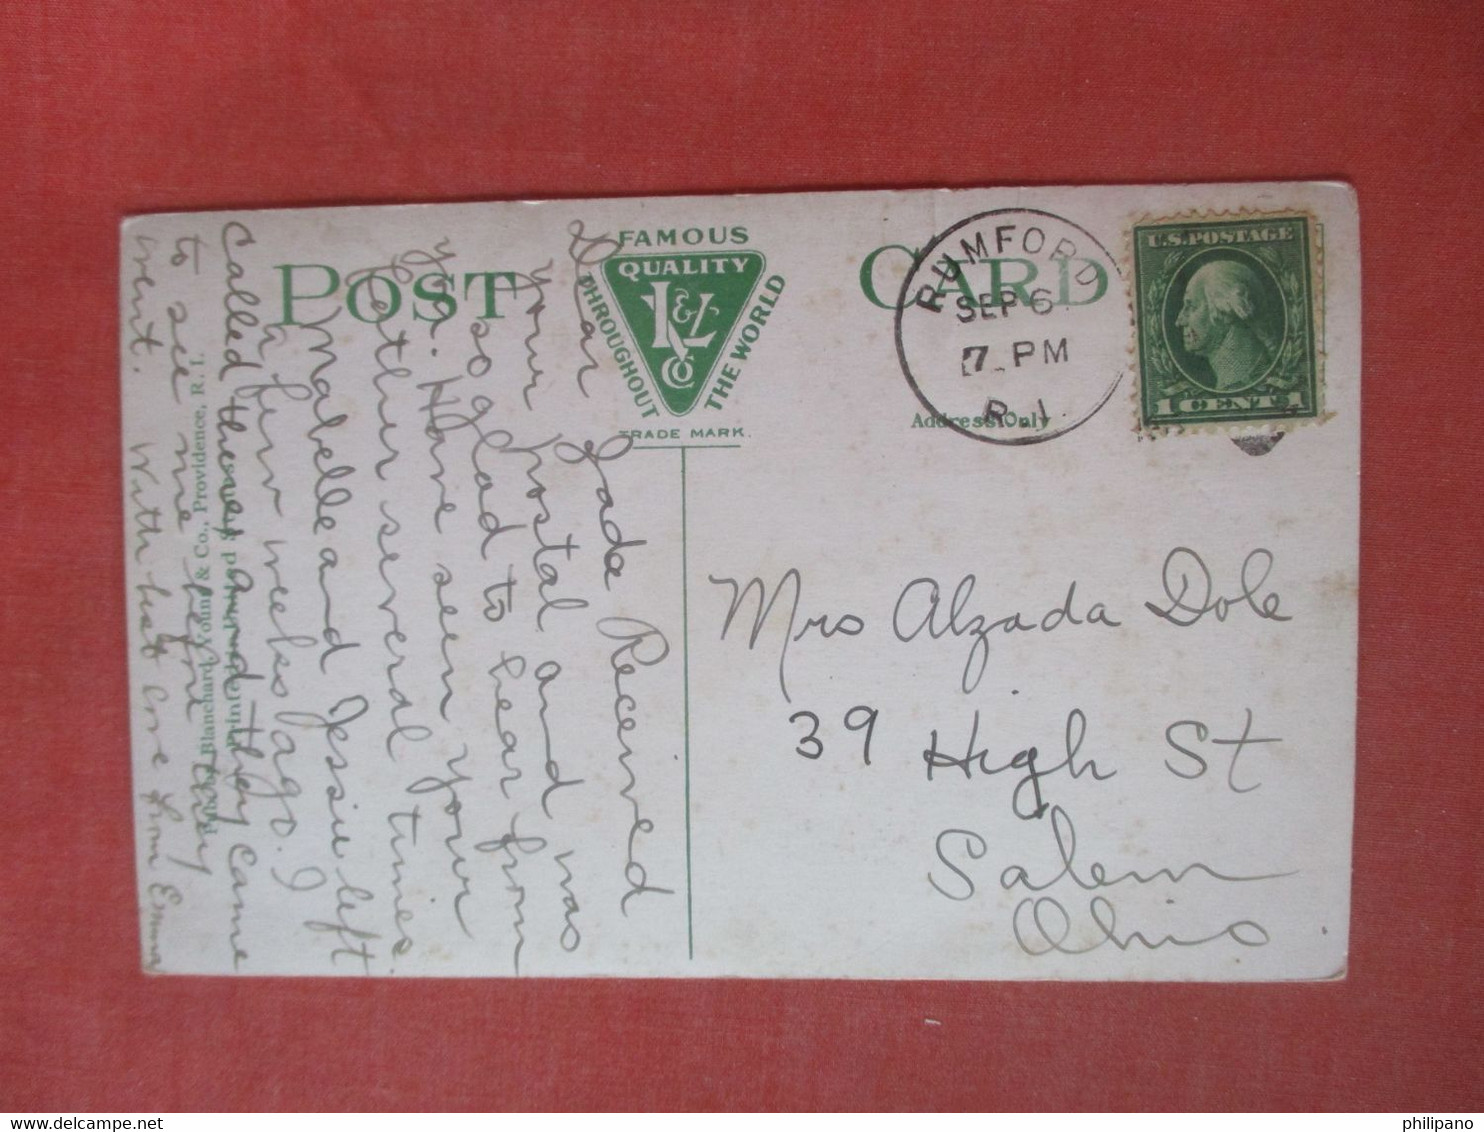 POST CARD
FAMOUS
QUALITY
K&L
Co
THROUGHOUT
THE WORLD
TRADE MARK.
Address Only
RUMFORD
SEP 6
7 PM
R. I.
U.S. POSTAGE
1 CENT 1
Mrs Alzada Dole
39 High St
Salem
Ohio
Dear Zada Received
your postal and was
so glad to hear from
you. Have seen your
father several times
Mabelle and Jessie left
a few weeks ago. I
Called there and they came
to see me before they
went. With best love from Emma
Blanchard, Young & Co., Providence, R. I.
philipano